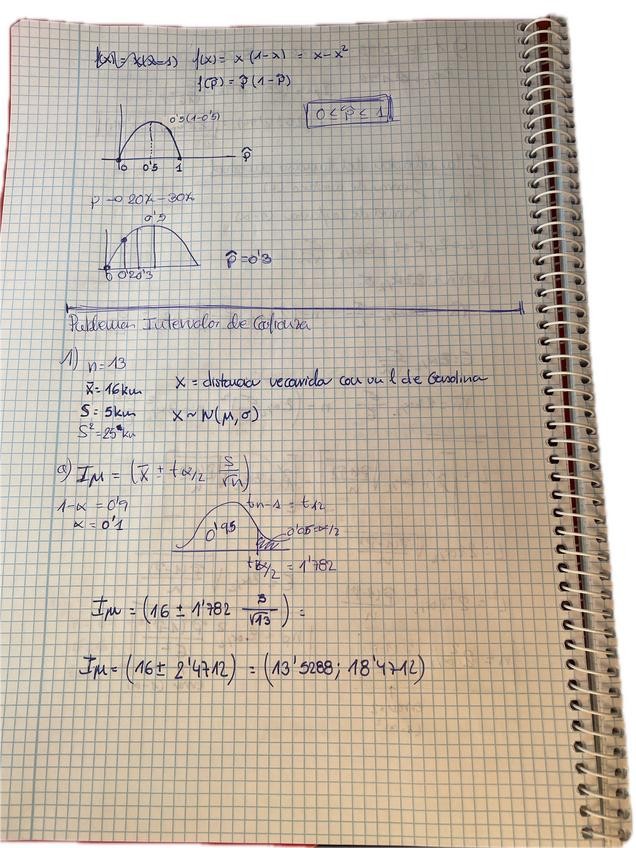 f(x) = x(x-1) f(x) = x(1-x) = x-x²
f(p̂) = p̂(1-p̂)
0'5(1-0'5)
0 < p̂ < 1
0 0'5 1 p̂
p → 20% - 30%
0 0'2 0'3
p̂ = 0'3
Problemas Intervalos de Confianza
1) n = 13
x̄ = 16 km X = distancia recorrida con un l de Gasolina
S = 5 km X ~ N(μ, σ)
S² = 25 km
a) Iμ = (x̄ ± tα/2 S/√n)
1-α = 0'9 tn-1 = t12
α = 0'1 0'95 0'05 = α/2
tα/2 = 1'782
Iμ = (16 ± 1'782 5/√13) =
Iμ = (16 ± 2'4712) = (13'5288; 18'4712)